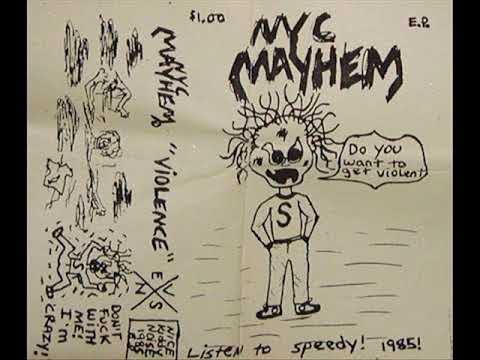 $1.00
E.P.
NYC
MAYHEM
Do you
want to
get violent
S
Listen to speedy! 1985!
NYC
MAYHEM
"VIOLENCE"
DON'T
FUCK
WITH
ME! I'M
CRAZY!
NICE
NOSE
1985